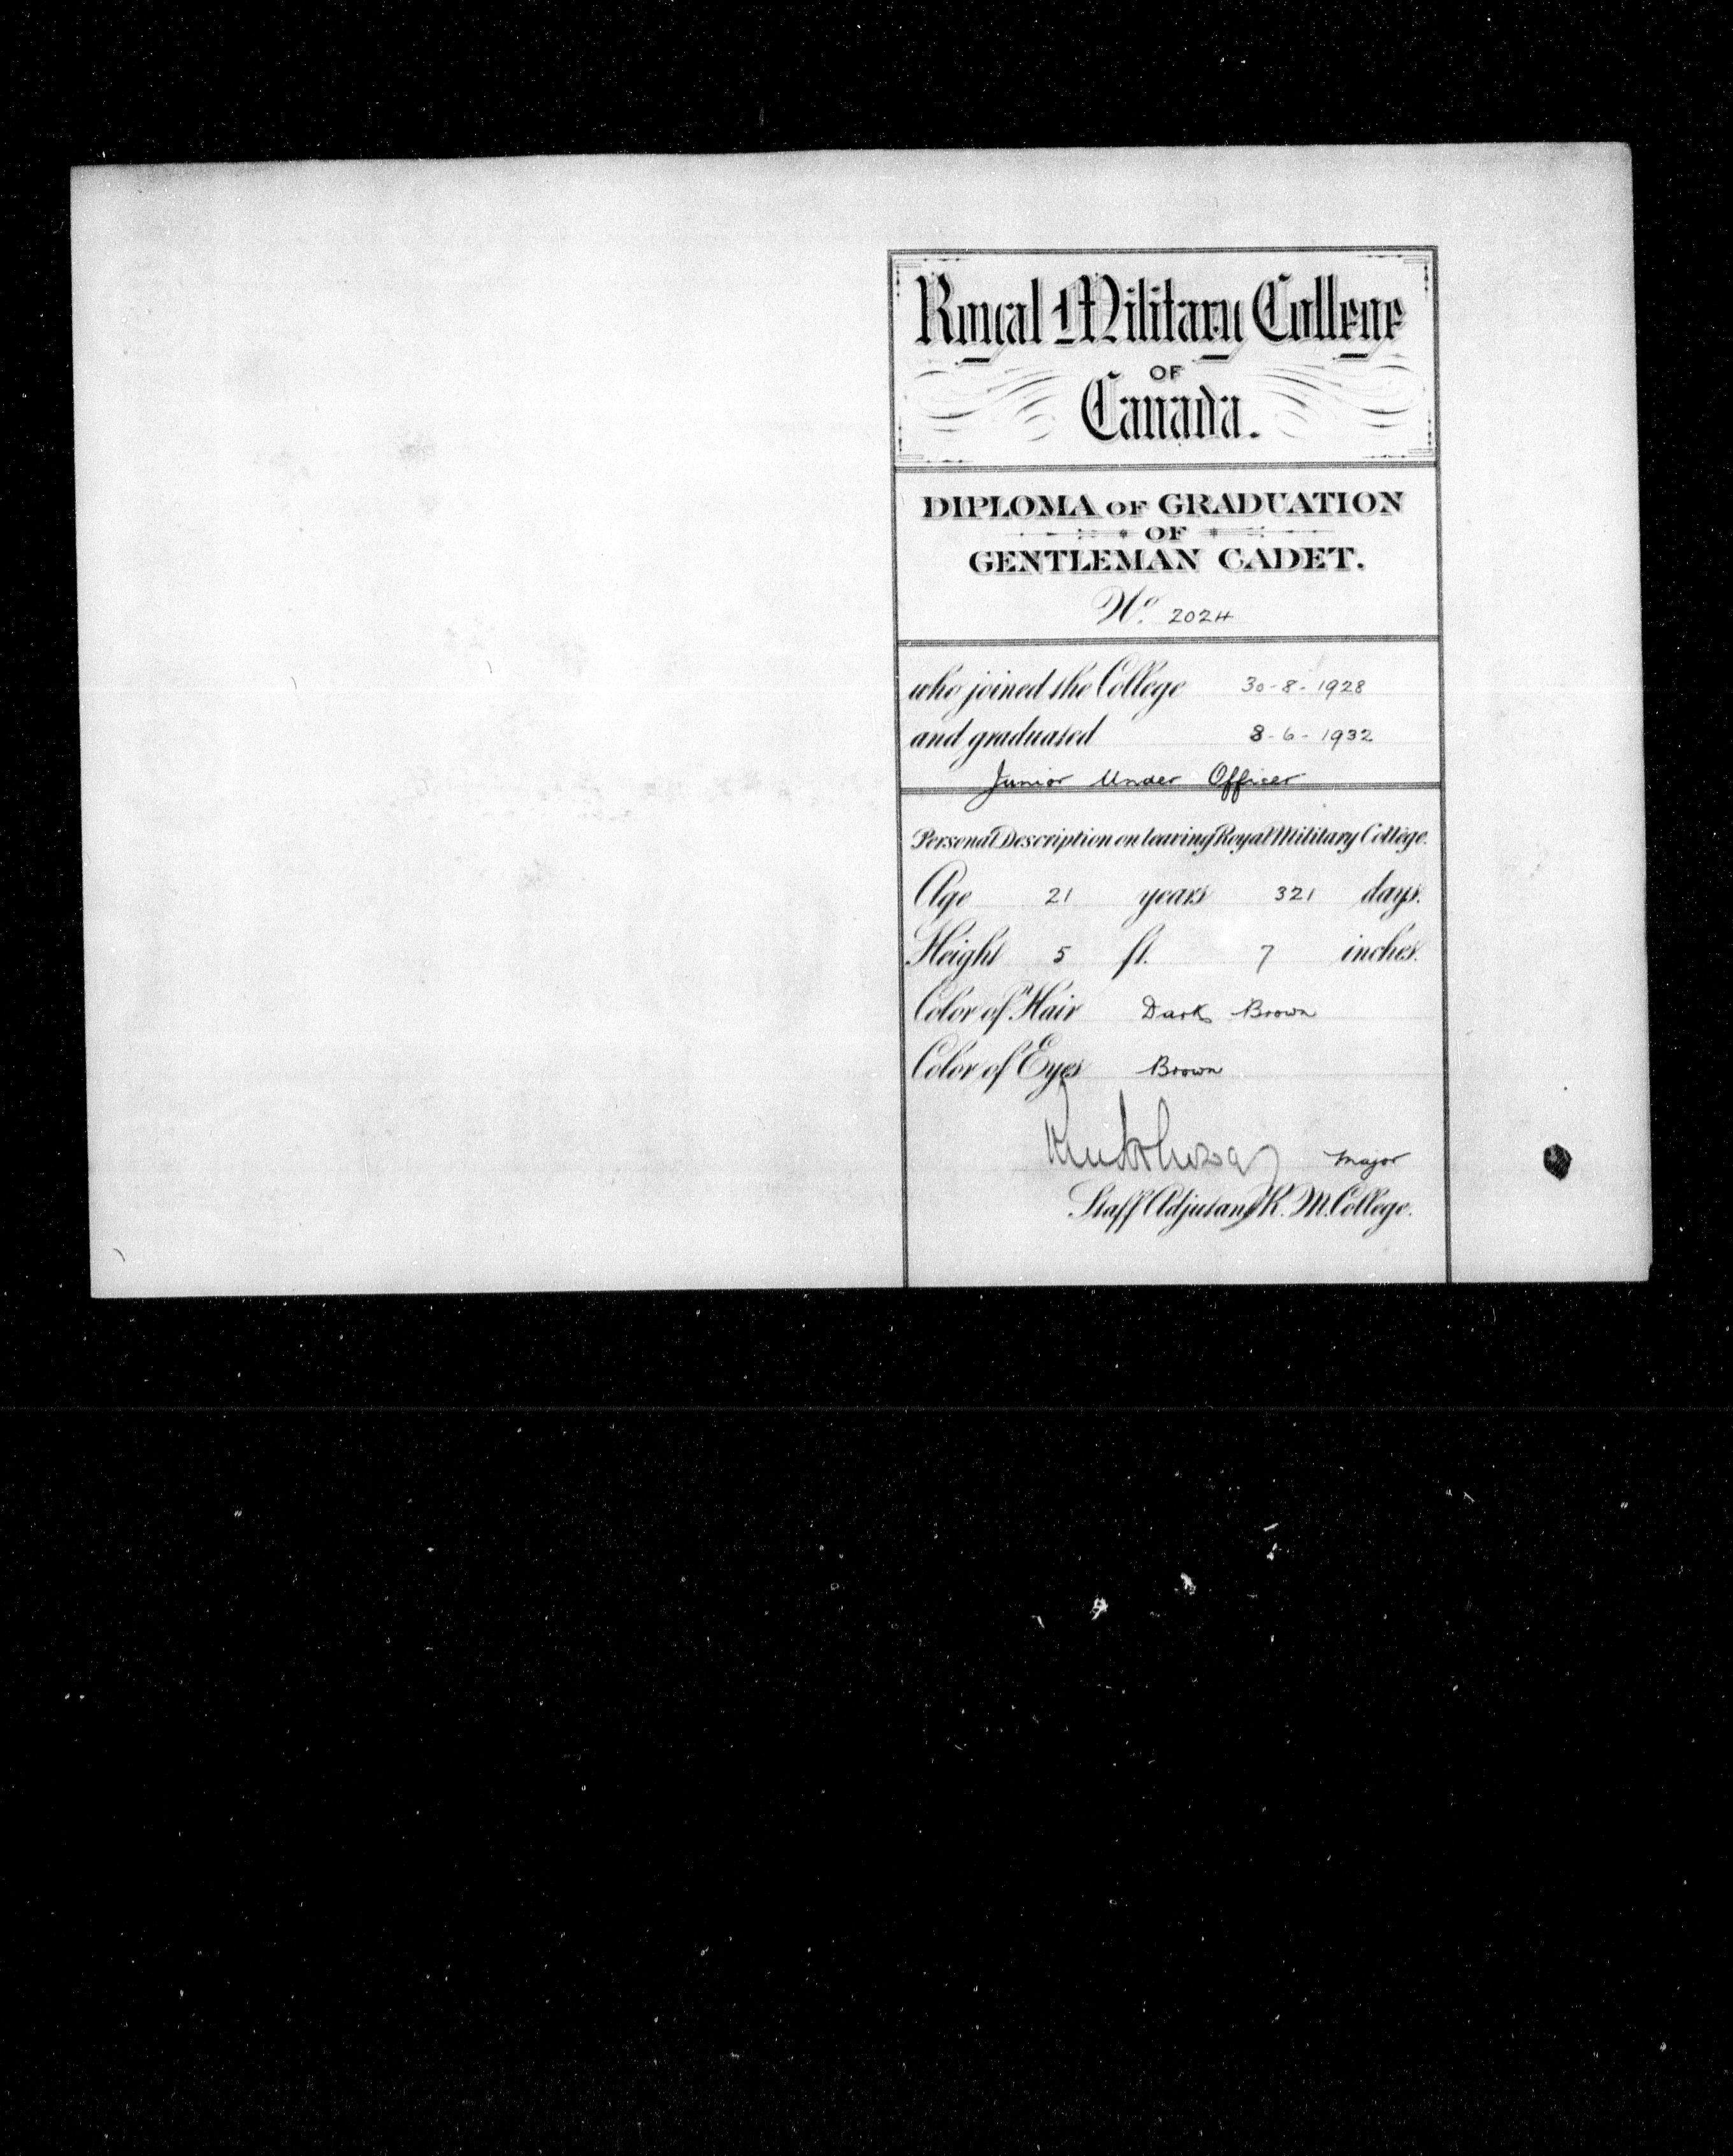 Royal Military College
OF
Canada.
DIPLOMA OF GRADUATION
OF
GENTLEMAN CADET.
No. 2024
who joined the College 30-8-1928
and graduated 8-6-1932
Junior Under Officer
Personal Description on leaving Royal Military College.
Age 21 years 321 days.
Height 5 ft. 7 inches.
Color of Hair Dark Brown
Color of Eyes Brown
Major
Staff Adjutant R. M. College.